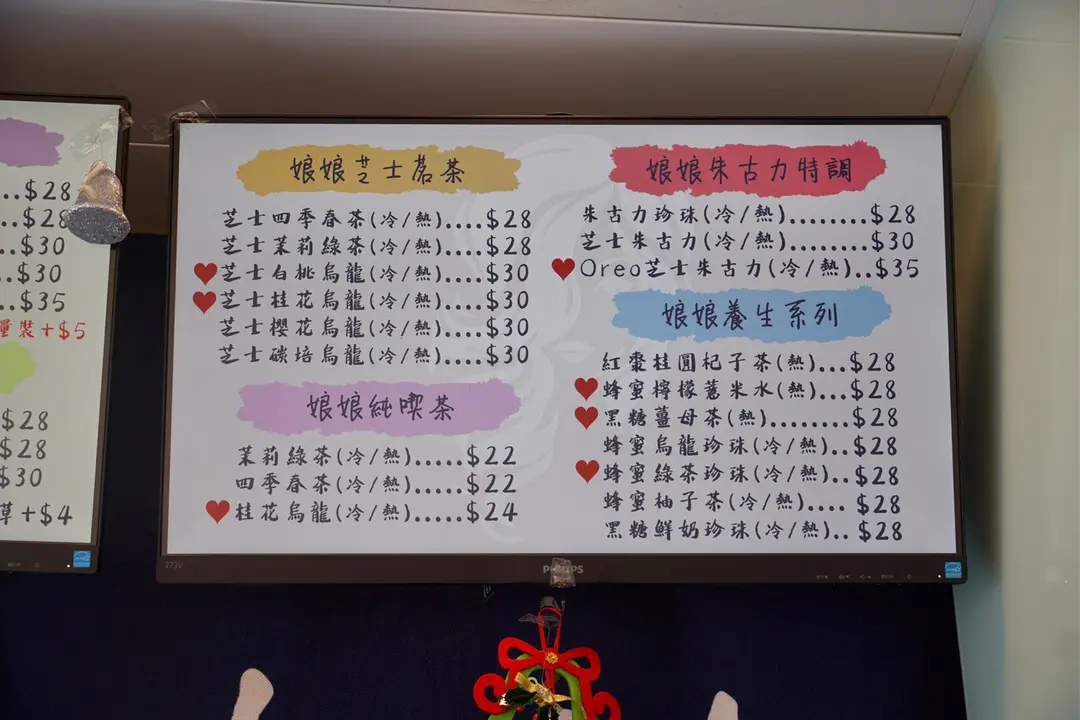 ..$28
..$28
..$30
..$30
..$35
量裝+$5
$28
$28
$30
草+$4
娘娘芝士茗茶
芝士四季春茶(冷/熱)....$28
芝士茉莉綠茶(冷/熱)....$28
芝士白桃烏龍(冷/熱)....$30
芝士桂花烏龍(冷/熱)....$30
芝士櫻花烏龍(冷/熱)....$30
芝士碳培烏龍(冷/熱)....$30
娘娘純喫茶
茉莉綠茶(冷/熱).....$22
四季春茶(冷/熱).....$22
桂花烏龍(冷/熱).....$24
娘娘朱古力特調
朱古力珍珠(冷/熱)........$28
芝士朱古力(冷/熱)........$30
Oreo芝士朱古力(冷/熱)..$35
娘娘養生系列
紅棗桂圓杞子茶(熱)...$28
蜂蜜檸檬薏米水(熱)...$28
黑糖薑母茶(熱).......$28
蜂蜜烏龍珍珠(冷/熱)..$28
蜂蜜綠茶珍珠(冷/熱)..$28
蜂蜜柚子茶(冷/熱)....$28
黑糖鮮奶珍珠(冷/熱)..$28
273V
PHILIPS